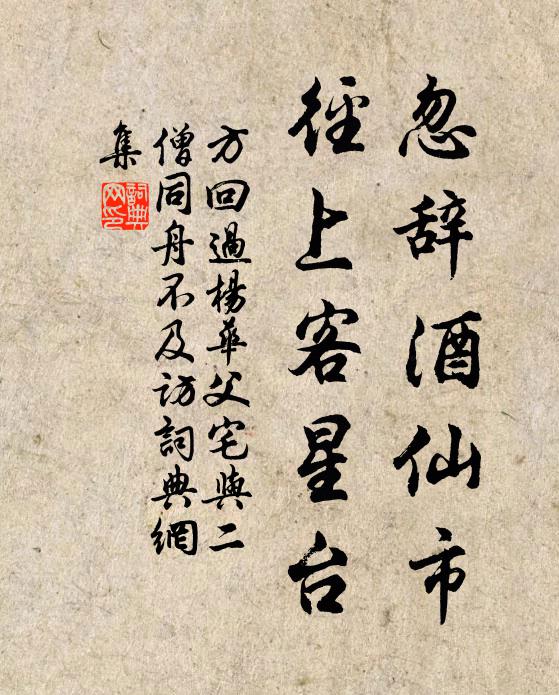 忽辞酒仙市
径上客星台
方回過楊華父宅與二
僧同舟不及訪詞典網
集
詞典
网印